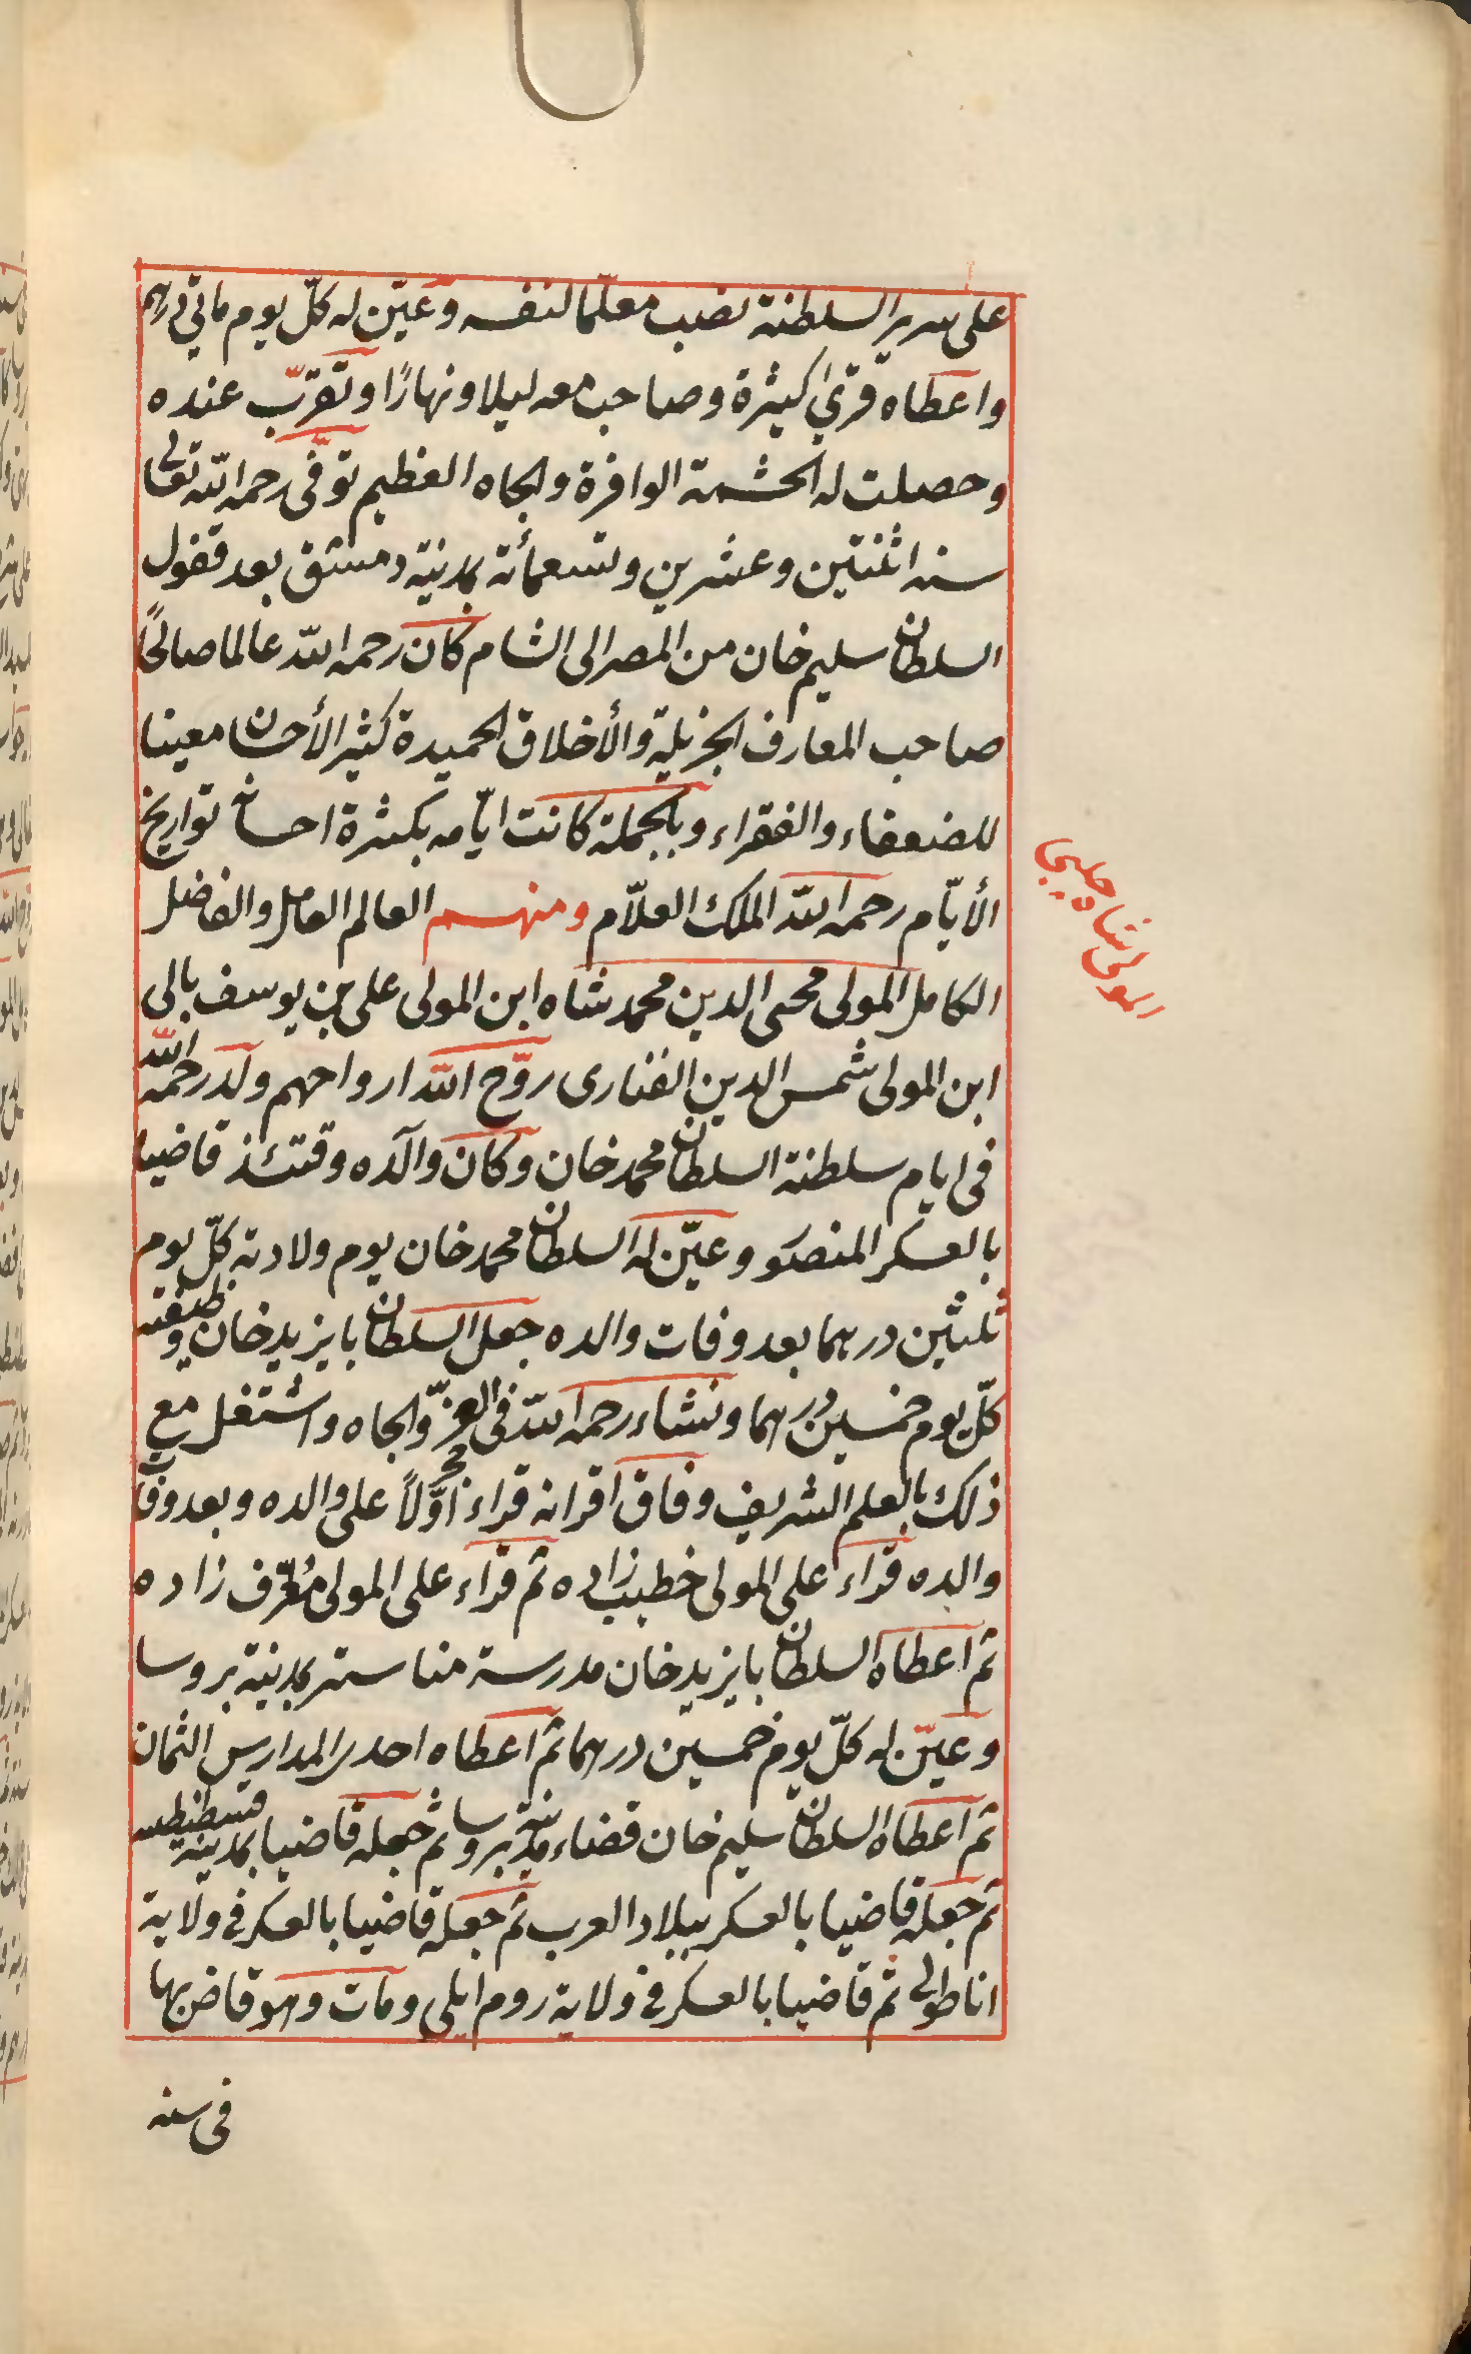 على سرير السلطنة نصب معلّما لنفسه وعيّن له كلّ يوم مائتي درهم
واعطاه قرىً كثيرة وصاحب معه ليلا ونهارًا وتقرّب عنده
وحصلت له الحشمة الوافرة والجاه العظيم توفّى رحمه الله تعالى
سنه اثنتين وعشرين وتسعمأئة بمدينة دمشق بعد قفول
السلطان سليم خان من المصر الى الشام كان رحمه الله عالما صالحًا
صاحب المعارف الجزيلة والأخلاق الحميدة كثير الأحسان معينا
للضعفاء والفقراء وبالجملة كانت ايّامه بكثرة احسانه تواريخ
الأيّام رحمه الله الملك العلاّم ومنهم العالم العامل والفاضل
المولى شاه چلبى
الكامل المولى محيى الدين محمد شاه ابن المولى على بن يوسف بالى
ابن المولى شمس الدين الفنارى روّح الله ارواحهم ولد رحمه الله
فى ايام سلطنة السلطان محمد خان وكان والده وقتئذ قاضيا
بالعسكر المنصور وعيّن له السلطان محمد خان يوم ولادته كلّ يوم
ثلثين درهما بعد وفات والده جعل السلطان بايزيد خان وظيفته
كلّ يوم خمسين درهما ونشاء رحمه الله فى العزّ والجاه واشتغل مع
ذلك بالعلم الشريف وفاق اقرانه قراء اوّلاً على والده وبعد وفات
والده قراء على المولى خطيب زاده ثم قراء على المولى معرّف زاده
ثم اعطاه السلطان بايزيد خان مدرسة مناستر بمدينة بروسا
وعيّن له كلّ يوم خمسين درهما ثم اعطاه احدى المدارس الثمان
ثم اعطاه السلطان سليم خان قضاء مدينة بروسا ثم جعله قاضيا بمدينة قسطنطينيه
ثم جعله قاضيا بالعسكر ببلاد العرب ثم جعله قاضيا بالعسكر فى ولاية
اناطولى ثم قاضيا بالعسكر فى ولاية روم ايلى ومات وهو قاض بها
فى سنه